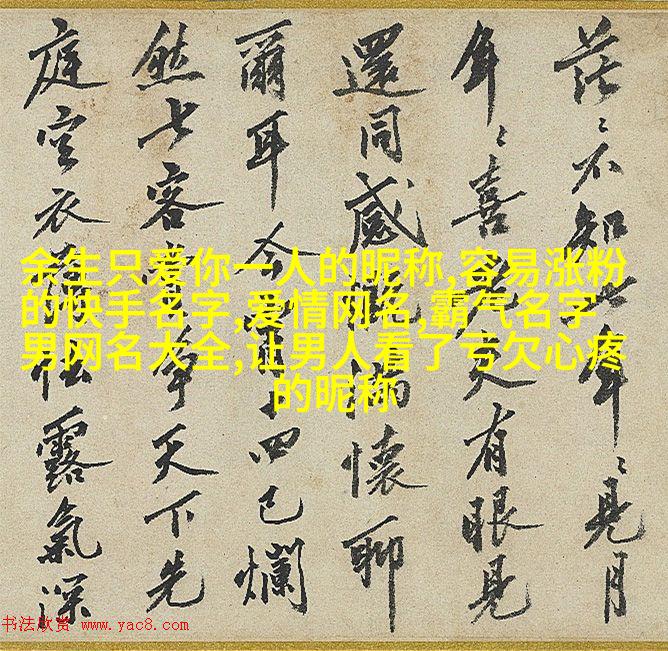 茫々不知年々見月
年々喜有眼見
還同感滿懷聊
爾耳今四已爛
然七客爭天下先
庭空衣露氣深
余生只爱你一人的昵称,容易涨粉
的快手名字,爱情网名,霸气名字
男网名大全,让男人看了亏欠心疼
的昵称
书法欣赏 www.yac8.com